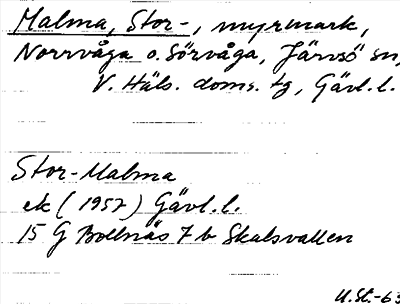 Malma, Stor-, myrmark,
Norrvåga o. Sörvåga, Järvsö sn,
V. Häls. doms. tg, Gävl. l.
Stor-Malma
ek (1957) Gävl. l.
15 G Bollnäs 7 b Skalsvallen
U.St.-63